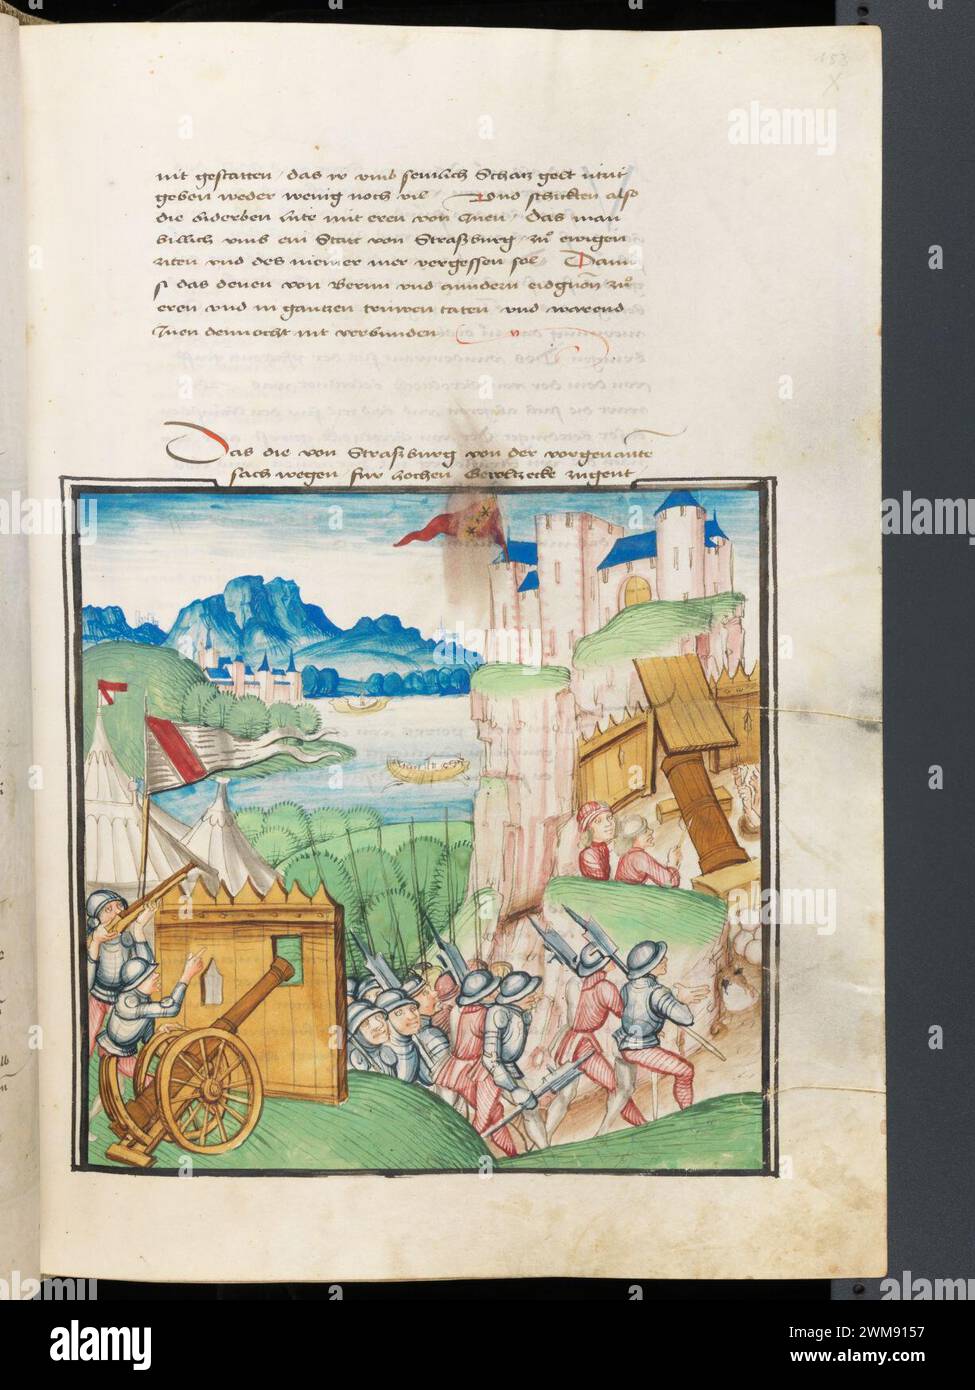 153
X
nit gestatten / das ir umb semlich Schatz gelt nützit
geben weder wenig noch vil Und schickten also
die biderben lüte mit eren von Inen / Das man
billich umb ein Statt von Straßburg zů ewigen
ziten und des niemer mer vergessen sol Dann
si das denen von Bernn und anndern eidgnoͤn zů
eren und in gantzen truwen taten und warend
Inen dennocht nit verbunden
Das die von Straßburg von der vorgenante
sach wegen für hochen Geroltzecke zugent
alamy
alamy
Image ID: 2WM9157
www.alamy.com